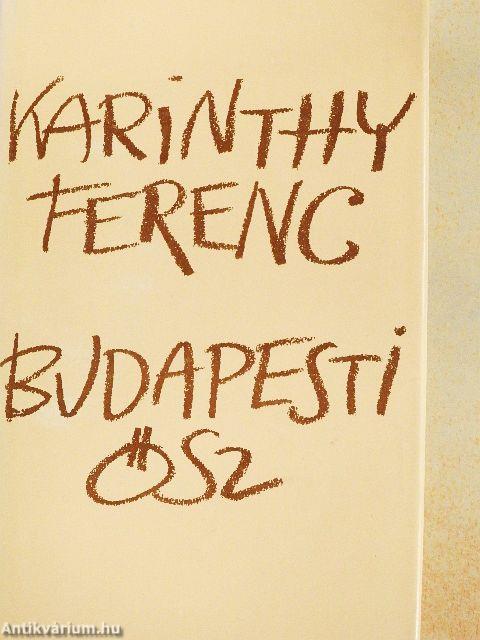 KARiNTHY
FERENC
BUDAPESTi
ŐSZ
Antikvárium.hu